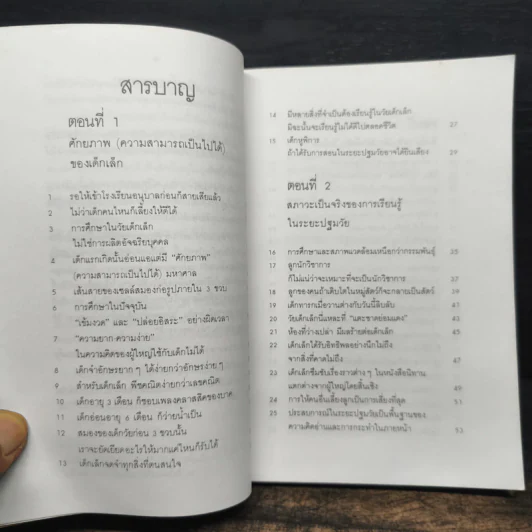 สารบาญ
ตอนที่ 1
ศักยภาพ (ความสามารถเป็นไปได้)
ของเด็กเล็ก
1 รอให้เข้าโรงเรียนอนุบาลก่อนก็สายเสียแล้ว
2 ไม่ว่าเด็กคนไหนก็เลี้ยงให้ดีได้
3 การศึกษาในวัยเด็กเล็ก
ไม่ใช่การผลิตอัจฉริยบุคคล
4 เด็กแรกเกิดนั้นอ่อนแอแต่มี "ศักยภาพ"
(ความสามารถเป็นไปได้) มหาศาล
5 เส้นสายของเซลล์สมองก่อรูปภายใน 3 ขวบ
6 การศึกษาในปัจจุบัน
"เข้มงวด" และ "ปล่อยอิสระ" อย่างผิดเวลา
7 "ความยาก-ความง่าย"
ในความคิดของผู้ใหญ่ใช้กับเด็กไม่ได้
8 เด็กจำอักษรยาก ๆ ได้ง่ายกว่าอักษรง่าย ๆ
9 สำหรับเด็กเล็ก พีชคณิตง่ายกว่าเลขคณิต
10 เด็กอายุ 3 เดือน ก็ชอบเพลงคลาสสิคของบาค
11 เด็กอ่อนอายุ 6 เดือน ก็ว่ายน้ำเป็น
12 สมองของเด็กวัยก่อน 3 ขวบนั้น
เราจะยัดเยียดอะไรให้มากแค่ไหนก็รับได้
13 เด็กเล็กจดจำทุกสิ่งที่ตนสนใจ
14 มีหลายสิ่งที่จำเป็นต้องเรียนรู้ในวัยเด็กเล็ก
มิฉะนั้นจะเรียนรู้ไม่ได้ดีไปตลอดชีวิต 37
15 เด็กหูพิการ
ถ้าได้รับการสอนในระยะปฐมวัยอาจได้ยินเสียง 39
ตอนที่ 2
สภาวะเป็นจริงของการเรียนรู้
ในระยะปฐมวัย
16 การศึกษาและสภาพแวดล้อมเหนือกว่ากรรมพันธุ์ 35
17 ลูกนักวิชาการ
ก็ไม่แน่ว่าจะเหมาะที่จะเป็นนักวิชาการ
18 ลูกของคนถ้าเติบโตในหมู่สัตว์ก็จะกลายเป็นสัตว์
19 เด็กทารกเมื่อวานต่างกับวันนี้ลิบลับ
20 วัยเด็กเล็กนี่แหละที่
21 ห้องที่ว่างเปล่า มีผลร้ายต่อเด็กเล็ก
22 เด็กเล็กได้รับอิทธิพลอย่างนึกไม่ถึง
จากสิ่งที่คาดไม่ถึง
23 เด็กเล็กซึมซับเรื่องราวต่าง ๆ ในหนังสือนิทาน
แตกต่างจากผู้ใหญ่โดยสิ้นเชิง
24 การให้คนอื่นเลี้ยงลูกเป็นการเสี่ยงที่สุด
25 ประสบการณ์ในระยะปฐมวัยเป็นพื้นฐานของ
ความคิดอ่านและการกระทำในภายหน้า 53